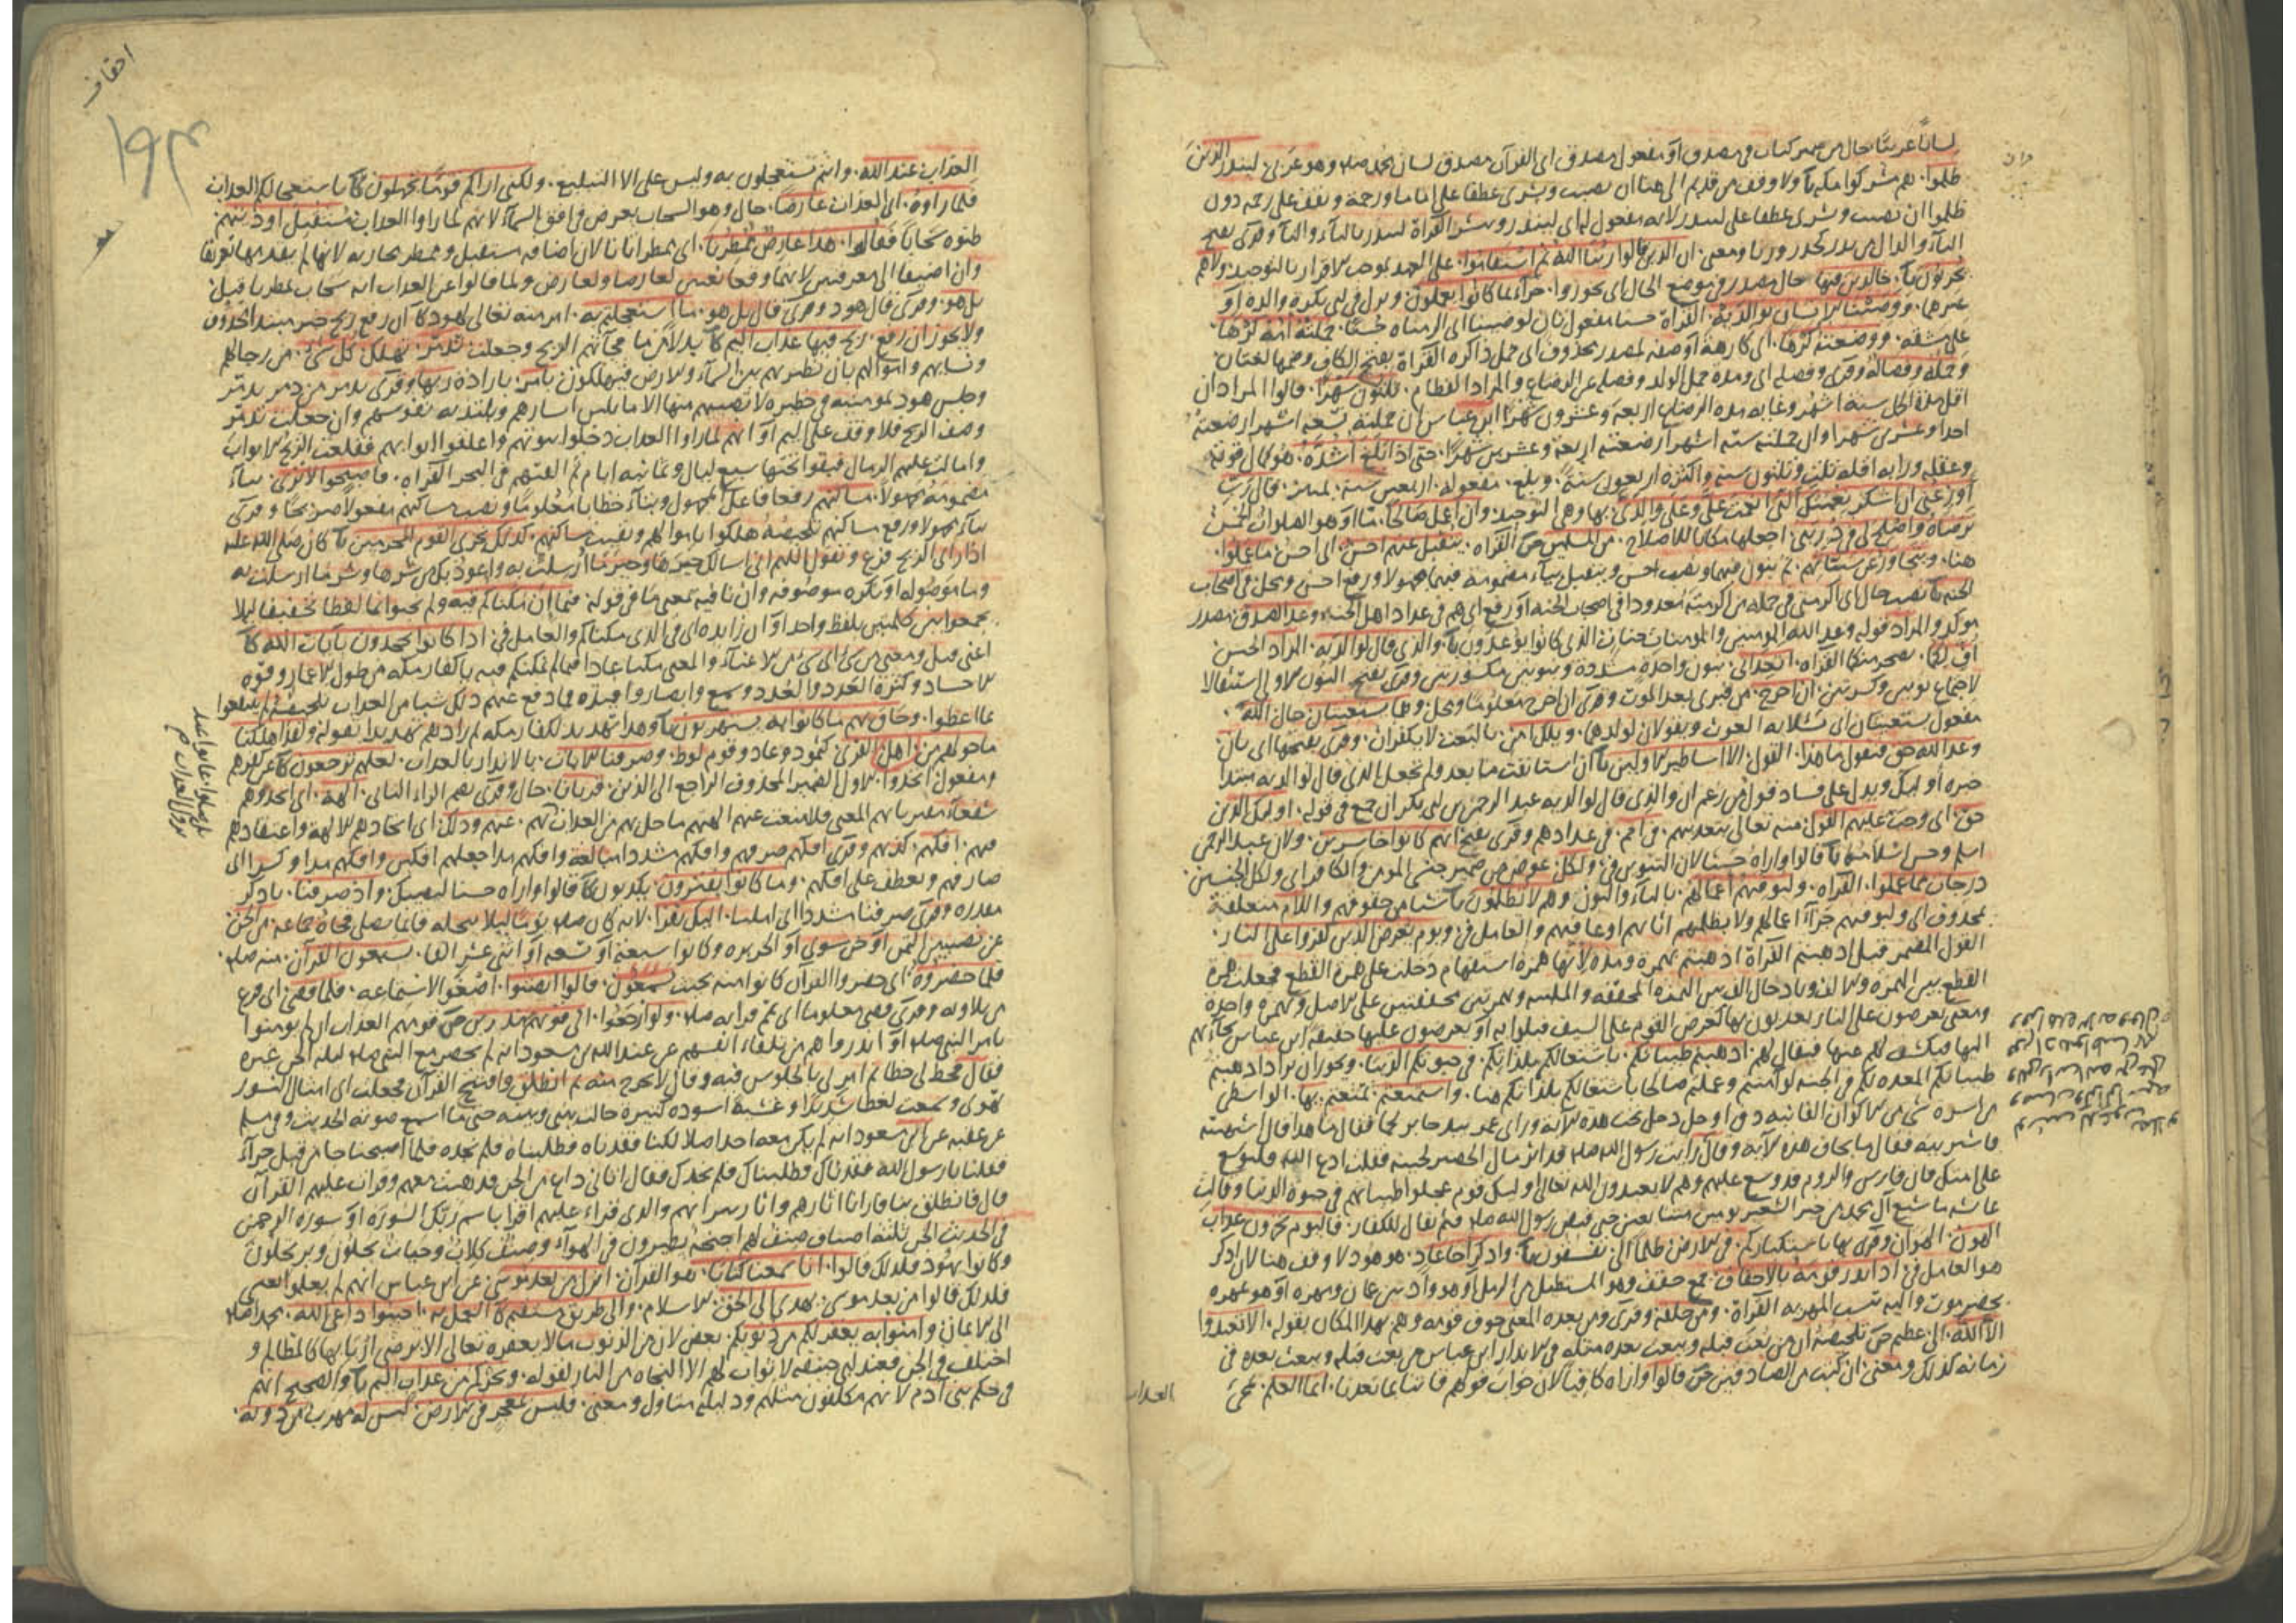 لسانا عربيا حال من ضمير كتاب في مصدق او مفعول مصدق اى القرآن مصدق لسان محمد صلم وهو عربى لينذر الذين
ظلموا هم مشركوا مكة ولا وقف من قديم الى هنا ان نصبت وبشرى عطفا على اماما ورحمة وتقف على رحمة دون
ظلموا ان نصبت وبشرى عطفا على لينذر لانه مفعول له اى لينذر ويبشر القراة لينذر بالياء والتاء وقرى بفتح
ان الذين قالوا ربنا الله ثم استقاموا على العهد بموجب الاقرار بالتوحيد ولاهم
يحزنون خالدين فيها حال مصدر في موضع الحال اى يجوزوا جزاء بما كانوا يعملون ونزل في ابى بكرة والده او
غيرهما ووصينا الانسان بوالديه القراة حسنا مفعول ثان لوصينا حملته امه كرها
على مشقة ووضعته كرها اى كارهة او صفة لمصدر محذوف اى حمل ذا كره القراة بفتح الكاف وضمها لغتان
وحمله وفصاله وقرى وفصله اى ومدة حمل الولد وفصله عن الرضاع والمراد الفطام ثلثون شهرا قالوا المراد ان
اقل مدة الحمل ستة اشهر وغاية مدة الرضاع اربعة وعشرون شهرا ابن عباس ان حملته تسعة اشهر ارضعته
احدا وعشرى شهرا وان حملته ستة اشهر ارضعته اربعة وعشرين شهرا حتى اذا بلغ اشده هو كمال قوته
وعقله ورايه اقله ثلث وثلثون سنة واكثره اربعون سنة وبلغ مفعوله اربعين سنة تمييز قال رب
اوزعنى ان اشكر نعمتك التى انعمت على وعلى والدى بها وهى التوحيد وان اعمل صالحا ما او هو الصلوات الخمس
ترضاه واصلح لى في ذريتى اجعلها مكانا للاصلاح من المسلمين القراه يتقبل عنهم احسن اى حسن ما عملوا
هنا ويتجاوز عن سيئاتهم بنون فيهما ونصب احسن ويتقبل بياء مضمومة فيهما مجهولا ورفع احسن ومحل في اصحاب
الجنة نصب حال اى اكرمنى في جملة من اكرمته معدودا في اصحاب الجنة او رفع اى هم في عداد اهل الجنة وعد الصدق مصدر
موكد والمراد قوله وعد الله المومنين والمومنات جنات الذى كانوا يوعدون والذى قال لوالديه المراد الجنس
اف لكما اتعداننى بنون واحدة مشددة وبنونين مكسورتين وقرى بفتح النون الاولى استثقالا
لاجتماع نونين وكسرتين ان اخرج من قبرى بعد الموت وقرى ان اخرج معلوما وهما يستغيثان حال الله
مفعول يستغيثان اى يسئلانه الغوث ويقولان لولدهما ويلك امن بالبعث لا يكفران وقرى بفتحها اى بان
وعد الله حق فيقول ما هذا القول الا اساطير الاولين ان استانفت ما بعد ولم تجعل الذى قال لوالديه مبتدا
خبره اولئك ويدل على فساد قول من زعم ان والذى قال لوالديه عبد الرحمن بن ابى بكر ان جمع في قوله اولئك الذين
حق اى وجب عليهم القول منه تعالى بتعذيبهم في امم في عدادهم وقرى بفتح انهم كانوا خاسرين ولان عبد الرحمن
اسلم وحسن اسلامه لان التنوين في ولكل عوض من ضمير جنسى المومن والكافر اى ولكل الجنسين
درجات مما عملوا القراه وليوفيهم اعمالهم بالياء والنون وهم لا يظلمون شيئا من حقوقهم واللام متعلقة
بمحذوف اى وليوفيهم جزاء اعمالهم ولا يظلمهم اثابهم او عاقبهم والعامل في ويوم يعرض الذين كفروا على النار
القول المضمر قبل اذهبتم القراة اذهبتم بهمزة ومده لانها همزة استفهام دخلت على همزة القطع فجعلت همزة
القطع بين الهمزة والالف وبادخال الف بين الهمزة المحققة والملينة وهمزتين محققتين على الاصل وبهمزة واحدة
ومعنى يعرضون على النار يعذبون بها كعرض القوم على السيف قتلوا به او يعرضون عليها حقيقة ابن عباس يجاء بهم
اليها فيكشف لهم عنها فيقال لهم اذهبتم طيباتكم باشتغالكم بلذاتكم في حيوتكم الدنيا ويجوز ان يراد اذهبتم
طيباتكم المعدة لكم في الجنة لو آمنتم وعملتم صالحا باشتغالكم بلذاتكم هنا واستمتعتم تمتعتم بها الواسطى
من اسره شى من الاكوان الفانية دق او جل دخل تحت هذه الاية وراى عمر بيد جابر لحما فقال ما هذا قال اشتهيته
فاشتريته فقال ما تخاف هذه الاية وقال رايت رسول الله صلم قد اثر رمال الحصير بجنبه فقلت ادع الله فليوسع
على امتك فان فارس والروم قد وسع عليهم وهم لا يعبدون الله تعالى اولئك قوم عجلوا طيباتهم في حيوة الدنيا وقالت
عائشة ما شبع آل محمد من خبز الشعير يومين متتابعين حتى قبض رسول الله صلم ثم يقال للكفار فاليوم تجزون عذاب
الهون الهوان وقرى بها بما تستكبرون في الارض ظلما الى تفسقون واذكر اخا عاد هو هود لا وقف هنا لان اذكر
هو العامل في اذ انذر قومه بالاحقاف جمع حقف وهو المستطيل من الرمل او هو واد بين عمان ومهره او هو عمهره
بحضرموت واليه تنسب المهرية القراة ومن خلفه وقرى ومن بعده المعنى خوف قومه وهم بهذا المكان بقوله الا تعبدوا
الا الله الى عظيم تلخيصه ان من بعث قبله وبعث بعده مثله في الانذار ابن عباس من بعث قبله وبعث بعده في
زمانه كذلك ومعنى ان كنت من الصادقين لان جواب قولهم فاتنا بما تعدنا انما العلم بمجى
العذاب
احقاف
١٩٣
العذاب عند الله وانتم تستعجلون به وليس على الا التبليغ ولكنى اراكم قوما تجهلون باستعجالكم العذاب
فلما راوه اى العذاب عارضا حال وهو السحاب يعرض في افق السماء لانهم لما راوا العذاب مستقبل اوديتهم
ظنوه سحابا فقالوا هذا عارض ممطرنا اى ممطر ايانا لان اضافة مستقبل وممطر مجازية لانها لم يفد بهما تعريفا
وان اضيفا الى معرفتين لانهما وقعا نعتين لعارضا ولعارض ولما قالوا عن العذاب انه سحاب ممطرنا قيل
بل هو وقرى قال هود وقرى قال بل هو ما استعجلتم به امر منه تعالى لهود ان رفع ريح خبر مبتدا محذوف
ولا يجوز ان رفع ريح فيها عذاب اليم بدلا من ما فجاءتهم الريح وجعلت تدمر تهلك كل شى من رجالهم
ونسائهم واموالهم بان تطير بهم بين السماء والارض فيهلكون بامر بارادة ربها وقرى يدمر من دمر يدمر
وجلس هود بمومنيه في حظيرة لا تصيبهم منها الا ما يلين ابشارهم وتلتذ به نفوسهم وان جعلت تدمر
وصف الريح فلا وقف على اليم او انهم لما راوا العذاب دخلوا بيوتهم واغلقوا ابوابهم فقلعت الريح الابواب
وامالت عليهم الرمال فبقوا تحتها سبع ليال وثمانية ايام ثم القتهم في البحر القراه فاصبحوا لا ترى بياء
مضمومة مجهولا مساكنهم رفعا فاعل المجهول وبتاء خطابا معلوما ونصب مساكنهم مفعولا صريحا وقرى
بتاء مجهولا ورفع مساكنهم تلخيصه هلكوا باموالهم وبقيت مساكنهم كذلك نجزى القوم المجرمين كان صلى الله عليه
اذا راى الريح فزع وتقول اللهم انى اسالك خيرها وخير ما ارسلت به واعوذ بك من شرها وشر ما ارسلت به
وما موصوله او نكره موصوفه وان نافية بمعنى ما في قوله فيما ان مكناكم فيه ولم يجئ بما لفظا تخفيفا لئلا
يجمعوا بين كلمتين بلفظ واحد او ان زايدة اى في الذى مكناكم والعامل في اذ كانوا يجحدون بآيات الله
اغنى قبل ومعنى من شى اى شى من الاغناء والمعنى مكنا عادا فيما لم نمكنكم فيه يا كفار مكة من طول الاعمار وقوة
الاجساد وكثرة العدد والعدد وسمع وابصار وافئدة فما دفع عنهم ذلك شيا من العذاب تلخيصه لم ينتفعوا
بما اعطوا وحاق بهم ما كانوا به يستهزون وهذا تهديد لكفار مكة ثم زادهم تهديدا بقوله ولقد اهلكنا
ما حولكم من اهل القرى كثمود وعاد وقوم لوط وصرفنا الايات بالانذار بالعذاب لعلهم يرجعون عن كفرهم
ومفعول اتخذوا الاول الضمير المحذوف الراجع الى الذين قربانا حال وقرى بضم الراء الثانى الهة اى اتخذوهم
شفعاء متقربا بهم المعنى فلا منعت عنهم الهتهم ما حل بهم من العذاب عنهم وذلك اى اتخاذهم الالهة واعتقادهم
فيهم افكهم كذبهم وقرى افكهم صرفهم وافكهم مشددا مبالغة وافكهم مدا جعلهم افكين وافكهم مدا وكسرا اى
صارفهم وتعطف على افكهم وما كانوا يفترون يكذبون واذ صرفنا باذكر
مقدره وقرى صرفنا مشددا اى املنا اليك نفرا لانه كان صلم يصلى فجاه جماعة من الجن
من نصيبين اليمن او من نينوى او الجزيره وكانوا سبعة او تسعة او اثنى عشر الفا يستمعون القرآن منه صلم
فلما حضروه اى حضروا القرآن كانوا منه بحيث يسمعون قالوا انصتوا اصغوا لاستماعه فلما قضى اى فرغ
من تلاوته وقرى قضى معلوما اى تمم قراته صلم ولوا رجعوا الى قومهم منذرين قومهم العذاب ان لم يومنوا
بامر النبى صلم او انذروا هم من تلقاء انفسهم عن عبد الله بن مسعود انه لم يحضر مع النبى صلم ليلة الجن غيره
فقال فخط لى خطا ثم امر لى بالجلوس فيه وقال لا تخرج منه ثم انطلق وافتتح القرآن فجعلت ارى امثال النسور
تهوى وسمعت لغطا شديدا وغشيه اسودة كثيرة حالت بينى وبينه حتى ما اسمع صوته الحديث وفى مسلم
عن علقمة عن ابن مسعود انه لم يكن معه احد اصلا لكنا فقدناه فطلبناه فلم نجده فلما اصبحنا جا من قبل حراء
فقلنا يا رسول الله فقدناك وطلبناك فلم نجدك فقال اتانى داع من الجن فذهبت معهم وقرات عليهم القرآن
قال فانطلق بنا فارانا آثارهم وآثار نيرانهم والذى قراه عليهم اقرا باسم ربك السورة او سورة الرحمن
في الحديث الجن ثلثة اصناف صنف لهم اجنحة يطيرون في الهواء وصنف كلاب وحيات يحلون ويرحلون
وكانوا يهود فلذلك قالوا انا سمعنا كتابا هو القرآن انزل من بعد موسى عن ابن عباس انهم لم يعلموا بعيسى
فلذلك قالوا من بعد موسى يهدى الى الحق الاسلام والى طريق مستقيم العمل به اجيبوا داعى الله محمدا صلم
الى الايمان وامنوا به يغفر لكم من ذنوبكم بعض لان من الذنوب ما لا يغفره تعالى الا برضى اربابها كالمظالم و
اختلف في الجن فعند ابى حنيفة لا ثواب لهم الا النجاة من النار لقوله ويجركم من عذاب اليم والصحيح انهم
في حكم بنى آدم لانهم مكلفون مثلهم ودليله متاول ومعنى فليس بمعجز في الارض ليس له مهرب من دونه